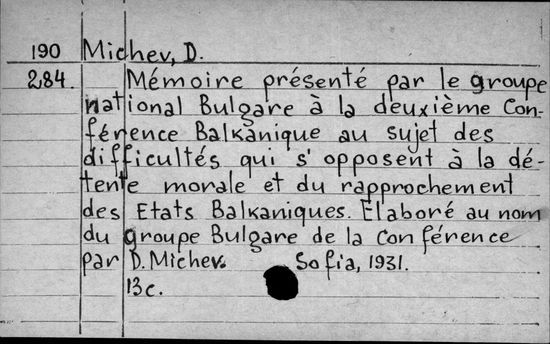 190 Michev, D.
284. Mémoire présenté par le groupe
national Bulgare à la deuxième Con-
férence Balkanique au sujet des
difficultés qui s' opposent à la dé-
tente morale et du rapprochement
des Etats Balkaniques. Elaboré au nom
du groupe Bulgare de la Conférence
par D. Michev. Sofia, 1931.
13c.